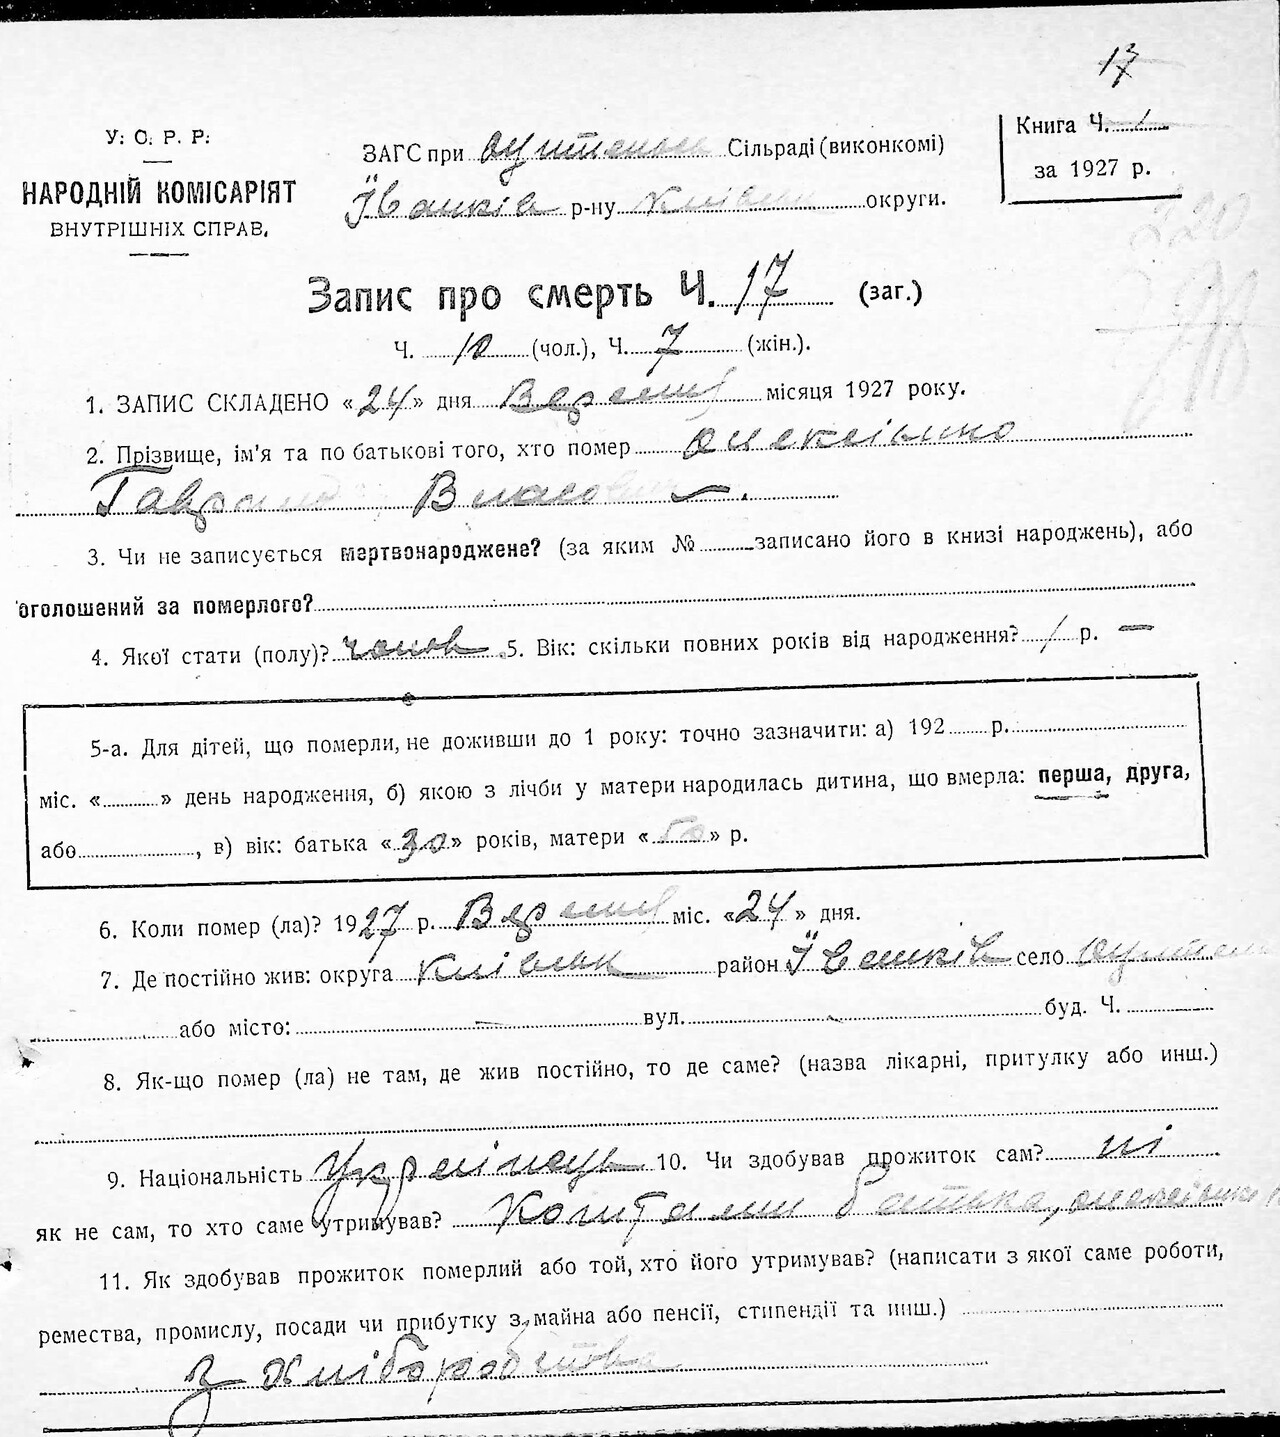 17
У. С. Р. Р.
НАРОДНІЙ КОМІСАРІЯТ
ВНУТРІШНІХ СПРАВ.
ЗАГС при Сільраді (виконкомі)
Іванків р-ну Київськ округи.
Книга Ч. 1
за 1927 р.
220
Запис про смерть Ч. 17 (заг.)
Ч. 10 (чол.), Ч. 7 (жін.).
1. ЗАПИС СКЛАДЕНО «24» дня Вересня місяця 1927 року.
2. Прізвище, ім'я та по батькові того, хто помер Олексієнко
Гаврило Власович.
3. Чи не записується мертвонароджене? (за яким № записано його в книзі народжень), або
оголошений за померлого?
4. Якої стати (полу)? чолов 5. Вік: скільки повних років від народження? 1 р. —
5-а. Для дітей, що померли, не доживши до 1 року: точно зазначити: а) 192 р.
міс. « » день народження, б) якою з лічби у матери народилась дитина, що вмерла: перша, друга,
або , в) вік: батька «30» років, матери « » р.
6. Коли помер (ла)? 1927 р. Вересня міс. «24» дня.
7. Де постійно жив: округа Київськ район Іванків село
або місто: — вул. буд. Ч.
8. Як-що помер (ла) не там, де жив постійно, то де саме? (назва лікарні, притулку або инш.)
9. Національність Українець 10. Чи здобував прожиток сам? ні
як не сам, то хто саме утримував? Коштами батька, Олексієнко
11. Як здобував прожиток померлий або той, хто його утримував? (написати з якої саме роботи,
ремества, промислу, посади чи прибутку з майна або пенсії, стипендії та инш.)
З хліборобства